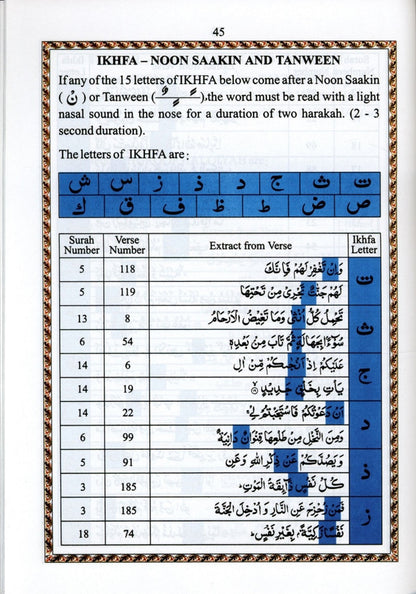 45
IKHFA – NOON SAAKIN AND TANWEEN
If any of the 15 letters of IKHFA below come after a Noon Saakin
( نْ ) or Tanween ( ـًـٍـٌ ), the word must be read with a light
nasal sound in the nose for a duration of two harakah. (2 - 3
second duration).
The letters of IKHFA are :
ت ث ج د ذ ز س ش
ص ض ط ظ ف ق ك
Surah Number Verse Number Extract from Verse Ikhfa Letter
5 118 وَاِنْ تَغْفِرْ لَهُمْ فَاِنَّكَ ت
5 119 لَهُمْ جَنّٰتٌ تَجْرِيْ مِنْ تَحْتِهَا
13 8 تَحْمِلُ كُلُّ اُنْثٰى وَمَا تَغِيْضُ الْاَرْحَامُ ث
6 54 سُوْٓءًۢا بِجَهَالَةٍ ثُمَّ تَابَ مِنْۢ بَعْدِهٖ
14 6 عَلَيْكُمْ اِذْ اَنْجٰىكُمْ مِّنْ اٰلِ ج
14 19 يَاْتِ بِخَلْقٍ جَدِيْدٍ
14 22 اَنْ دَعَوْتُكُمْ فَاسْتَجَبْتُمْ لِيْ د
6 99 وَمِنَ النَّخْلِ مِنْ طَلْعِهَا قِنْوَانٌ دَانِيَةٌ
5 91 وَيَصُدَّكُمْ عَنْ ذِكْرِ اللّٰهِ وَعَنِ ذ
3 185 كُلُّ نَفْسٍ ذَآئِقَةُ الْمَوْتِ
3 185 فَمَنْ زُحْزِحَ عَنِ النَّارِ وَاُدْخِلَ الْجَنَّةَ ز
18 74 نَفْسًا زَكِيَّةًۢ بِغَيْرِ نَفْسٍ